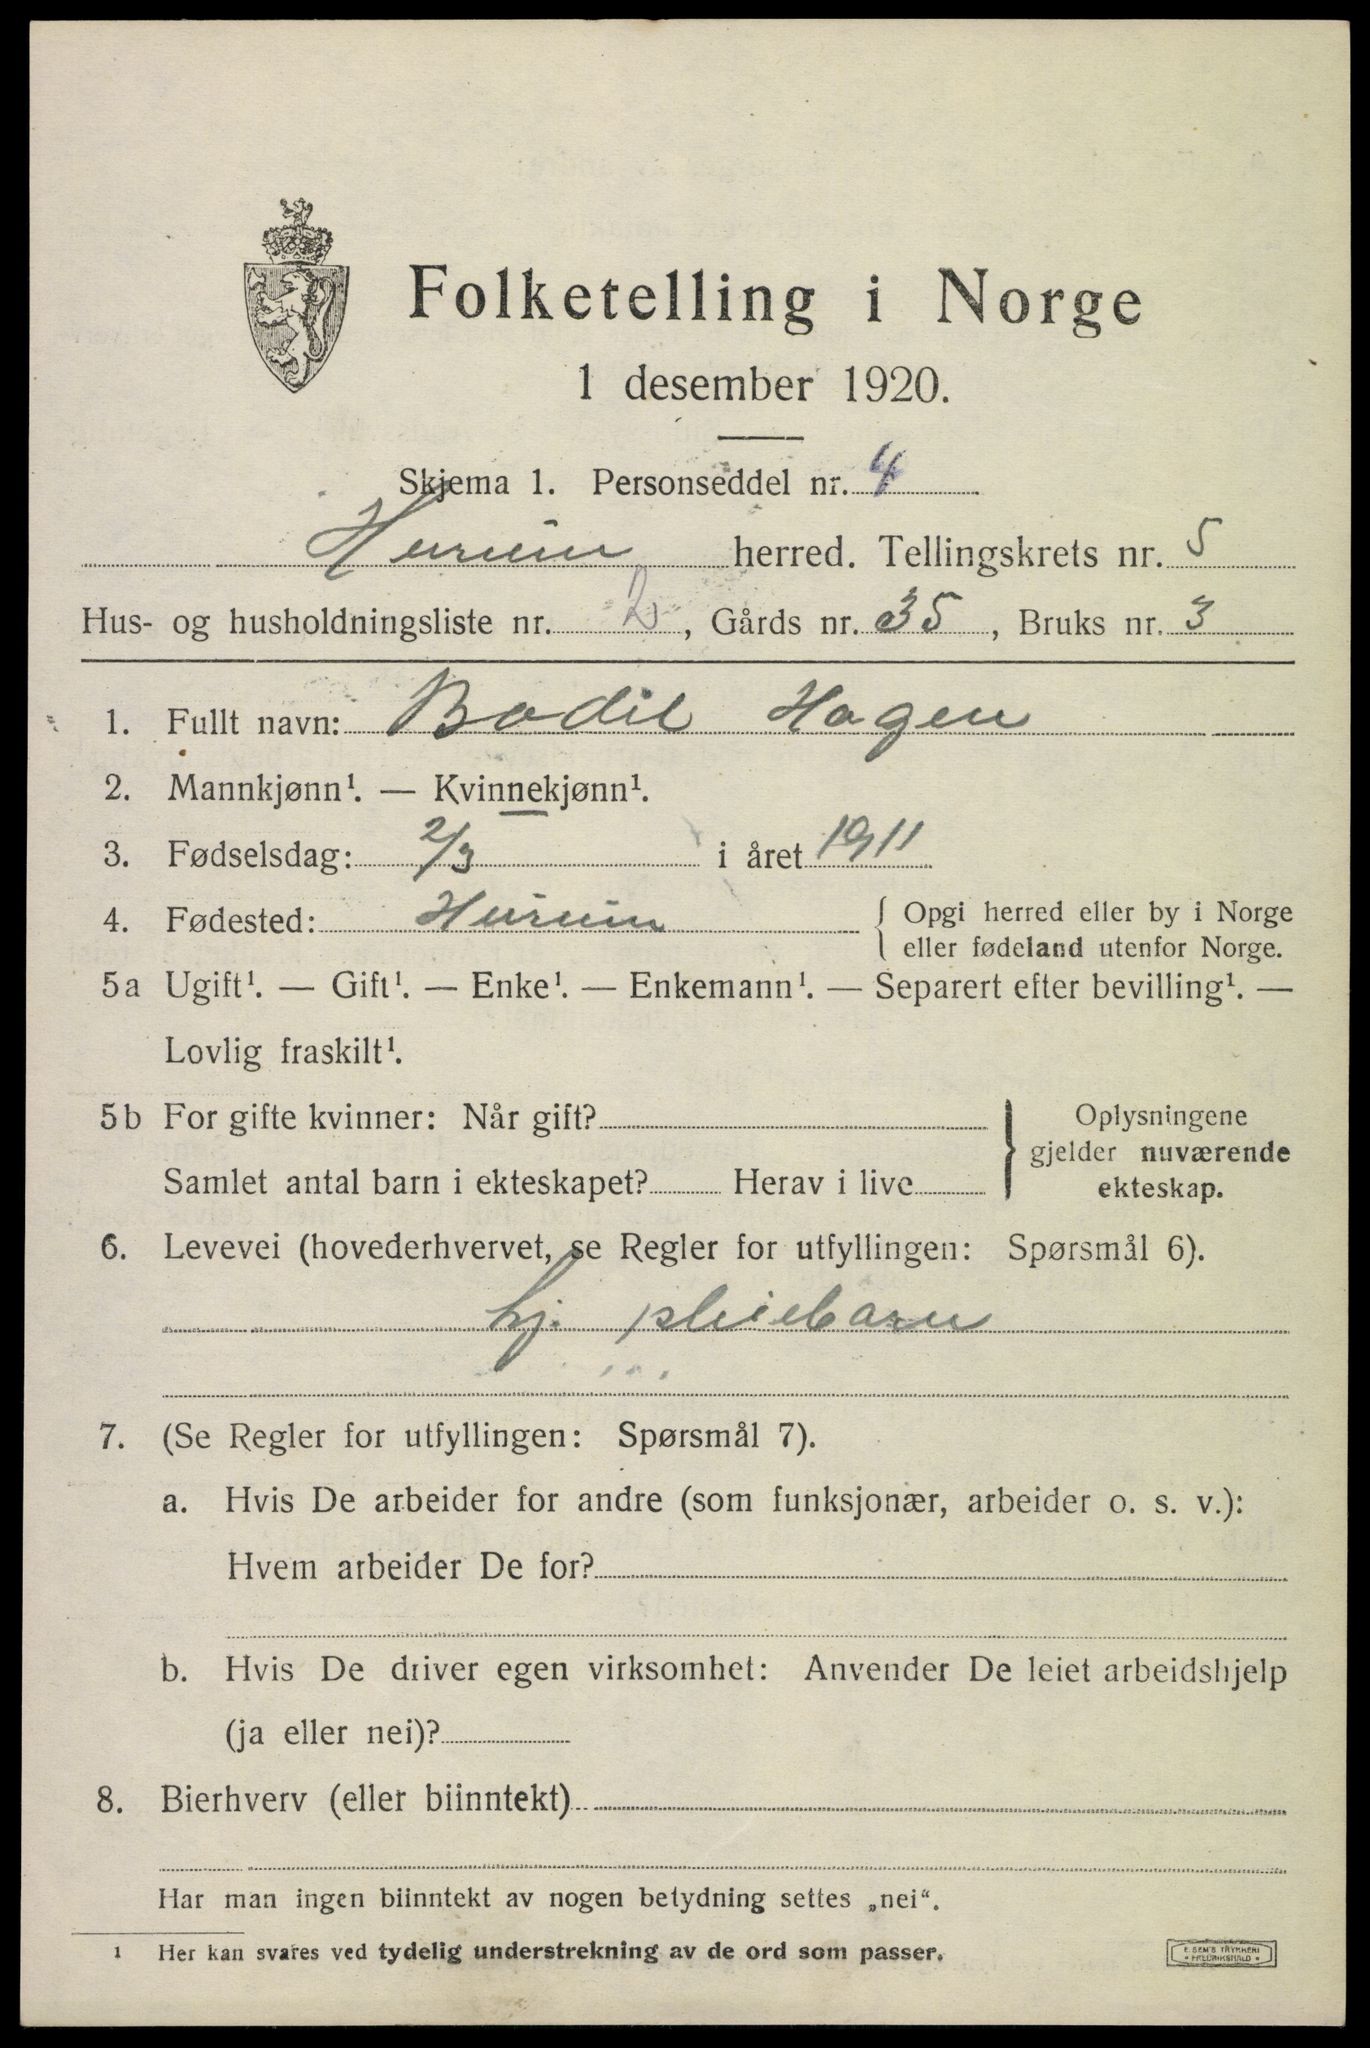 Folketelling i Norge
1 desember 1920.
Skjema 1. Personseddel nr. 4
Hurum herred. Tellingskrets nr. 5
Hus- og husholdningsliste nr. 2, Gårds nr. 35, Bruks nr. 3
1. Fullt navn: Bodil Hagen
2. Mannkjønn¹. — Kvinnekjønn¹.
3. Fødselsdag: 2/3 i året 1911
4. Fødested: Hurum { Opgi herred eller by i Norge
eller fødeland utenfor Norge.
5a Ugift¹. — Gift¹. — Enke¹. — Enkemann¹. — Separert efter bevilling¹. —
Lovlig fraskilt¹.
5b For gifte kvinner: Når gift? } Oplysningene
gjelder nuværende
Samlet antal barn i ekteskapet? Herav i live ekteskap.
6. Levevei (hovederhvervet, se Regler for utfyllingen: Spørsmål 6).
hj. pleiebarn
7. (Se Regler for utfyllingen: Spørsmål 7).
a. Hvis De arbeider for andre (som funksjonær, arbeider o. s. v.):
Hvem arbeider De for?
b. Hvis De driver egen virksomhet: Anvender De leiet arbeidshjelp
(ja eller nei)?
8. Bierhverv (eller biinntekt)
Har man ingen biinntekt av nogen betydning settes „nei“.
1 Her kan svares ved tydelig understrekning av de ord som passer.
E. SEM'S TRYKKERI
FREDRIKSHALD